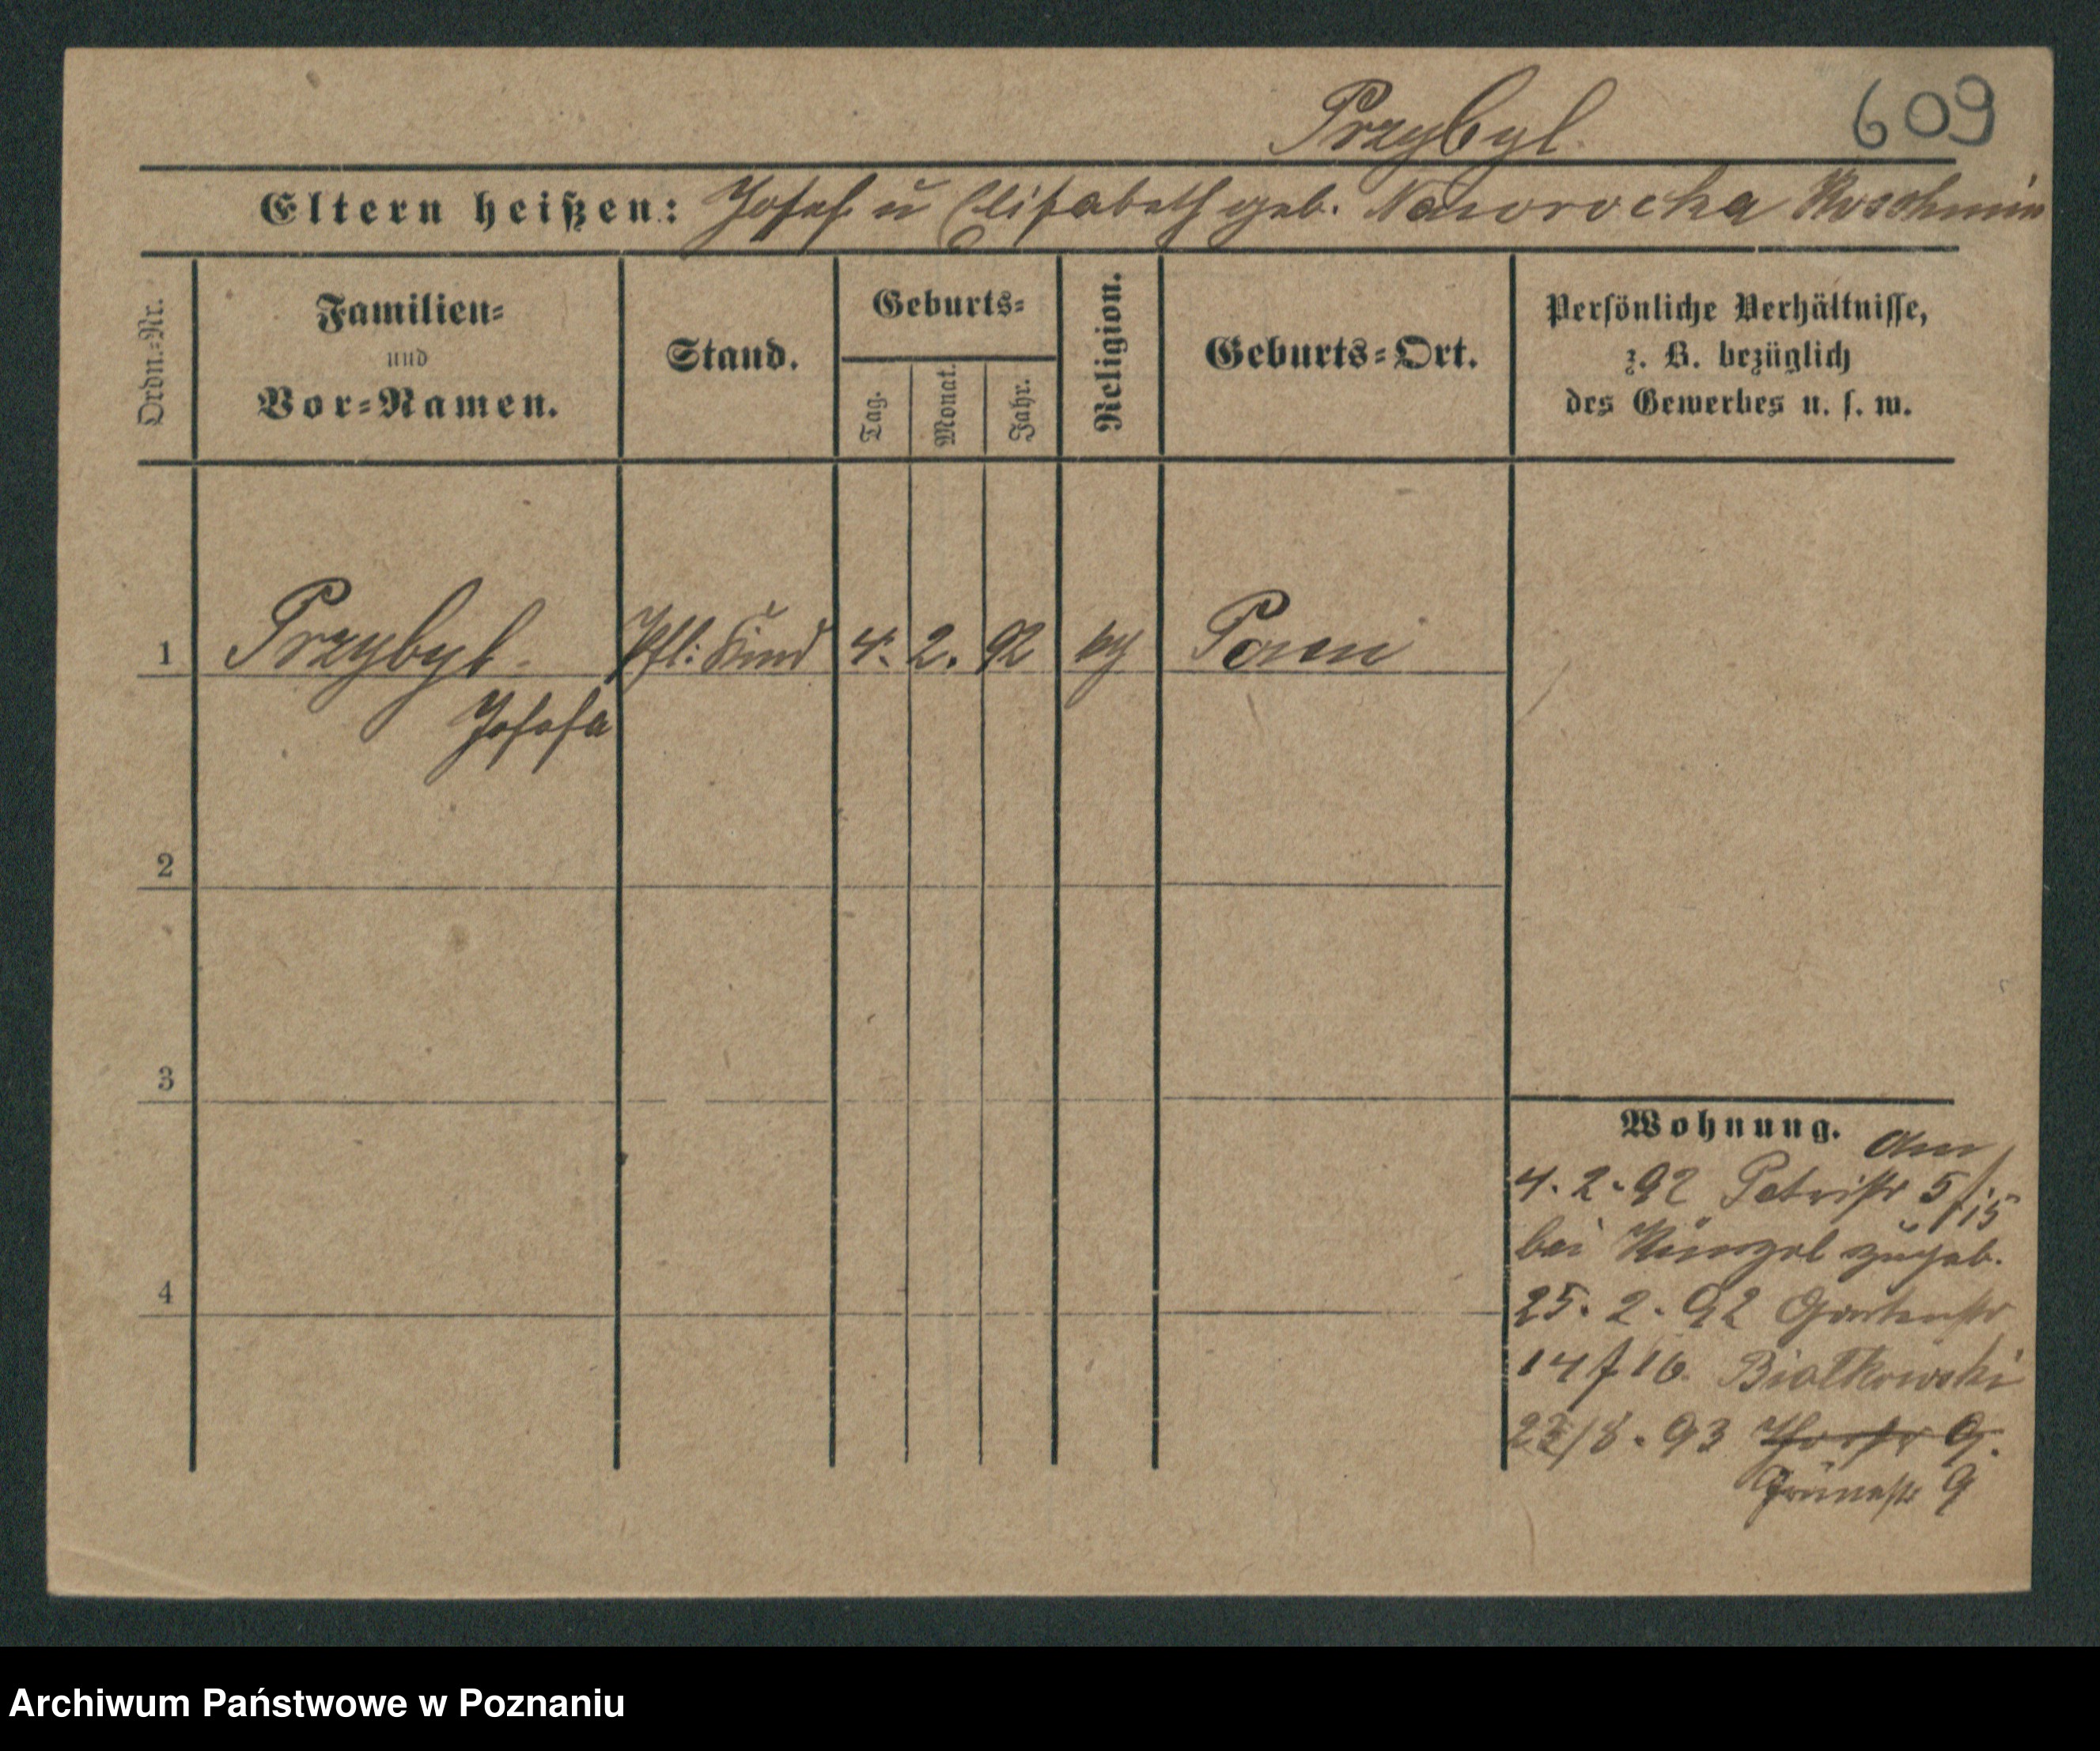 Przybyl.
609
Eltern heißen: Josef u Elisabeth geb. Naworocka Koschmin
Ordn.-Nr.
Familien-
und
Vor-Namen.
Stand.
Geburts-
Tag.
Monat.
Jahr.
Religion.
Geburts-Ort.
Persönliche Verhältnisse,
z. B. bezüglich
des Gewerbes u. s. w.
1 Przybyl. Pfl: Kind 4. 2. 92 kg
Josefa
2
3
4
Wohnung. am
4. 2. 92 Petristr 5/15
bei zugeb.
25. 2. 92 Gartenstr
14 f 16. Bialkowski
/8. 93 9.
Grünestr 9
Archiwum Państwowe w Poznaniu